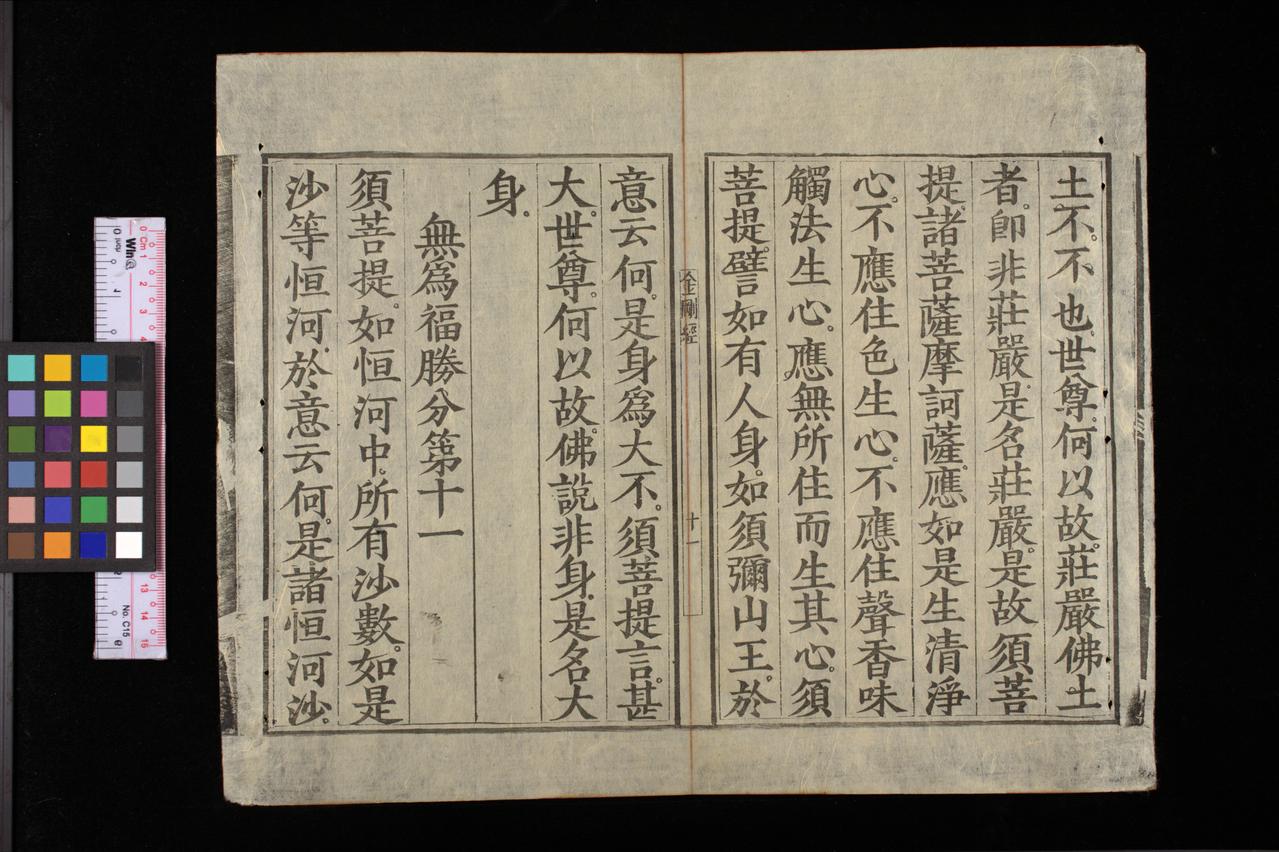 土不。不也。世尊。何以故。莊嚴佛土
者。卽非莊嚴。是名莊嚴。是故須菩
提。諸菩薩摩訶薩。應如是生清淨
心。不應住色生心。不應住聲香味
觸法生心。應無所住而生其心。須
菩提。譬如有人身。如須彌山王。於
金剛經
十一
意云何。是身爲大不。須菩提言。甚
大。世尊。何以故。佛說非身。是名大
身。
無爲福勝分第十一
須菩提。如恒河中。所有沙數。如是
沙等恒河。於意云何。是諸恒河沙。
0 Cm 1 2 3 4
13 14 15
Win@
No. C15